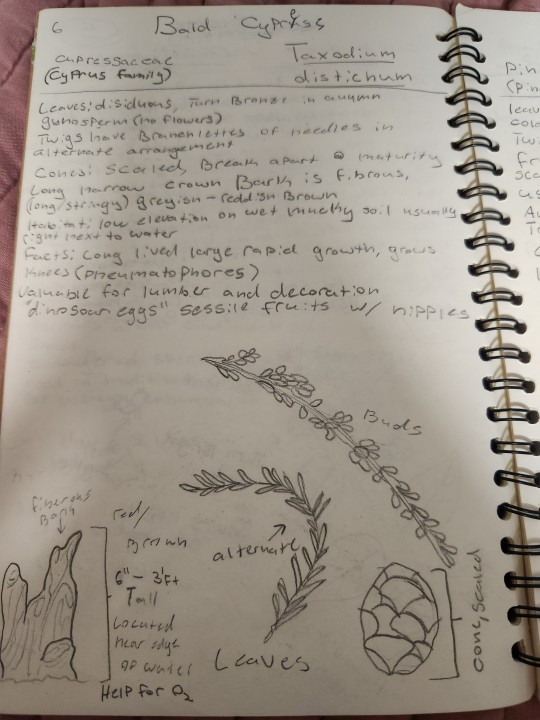 6
Bald Cypress
Cupressaceae
(Cyprus family)
Taxodium
distichum
Leaves: disiduous, Turn Bronze in autumn
gunosperm (no flowers)
Twigs have Branchlettes of needles in
alternate arrangement
Cones: Scaled, Break apart @ maturity
Long narrow crown Bark is fibrous,
(long/stringy) greyish-reddish Brown
Habitat: low elevation on wet mucky soil usually
right next to water
Facts: Long lived large rapid growth, grows
Knees (pneumatophores)
valuable for lumber and decoration
"dinosaur eggs" sessile fruits w/ nipples
Buds
fiberous
Bark
red/
Brown
6"- 3Ft
Tall
Located
near edge
of water
Help for O2
alternate
Leaves
cone, scaled
Pin
(pin
leav
Twi